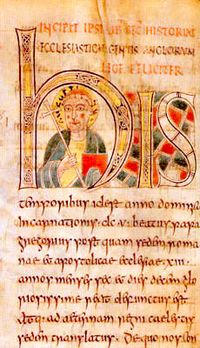 INCIPIT IPSIUS HISTORIAE
ECCLESIASTICAE GENTIS ANGLORUM
LEGE FELICITER
hIS
temporibus id est anno dominicae
incarnationis dc v beatus papa
gregorius postquam sedem roma
nae et apostolicae ecclesiae xiii
annos menses sex et dies decem glo
riosissime rexit defunctus est
atq· ad aeternam regni caelestis
sedem translatus. De quo nos